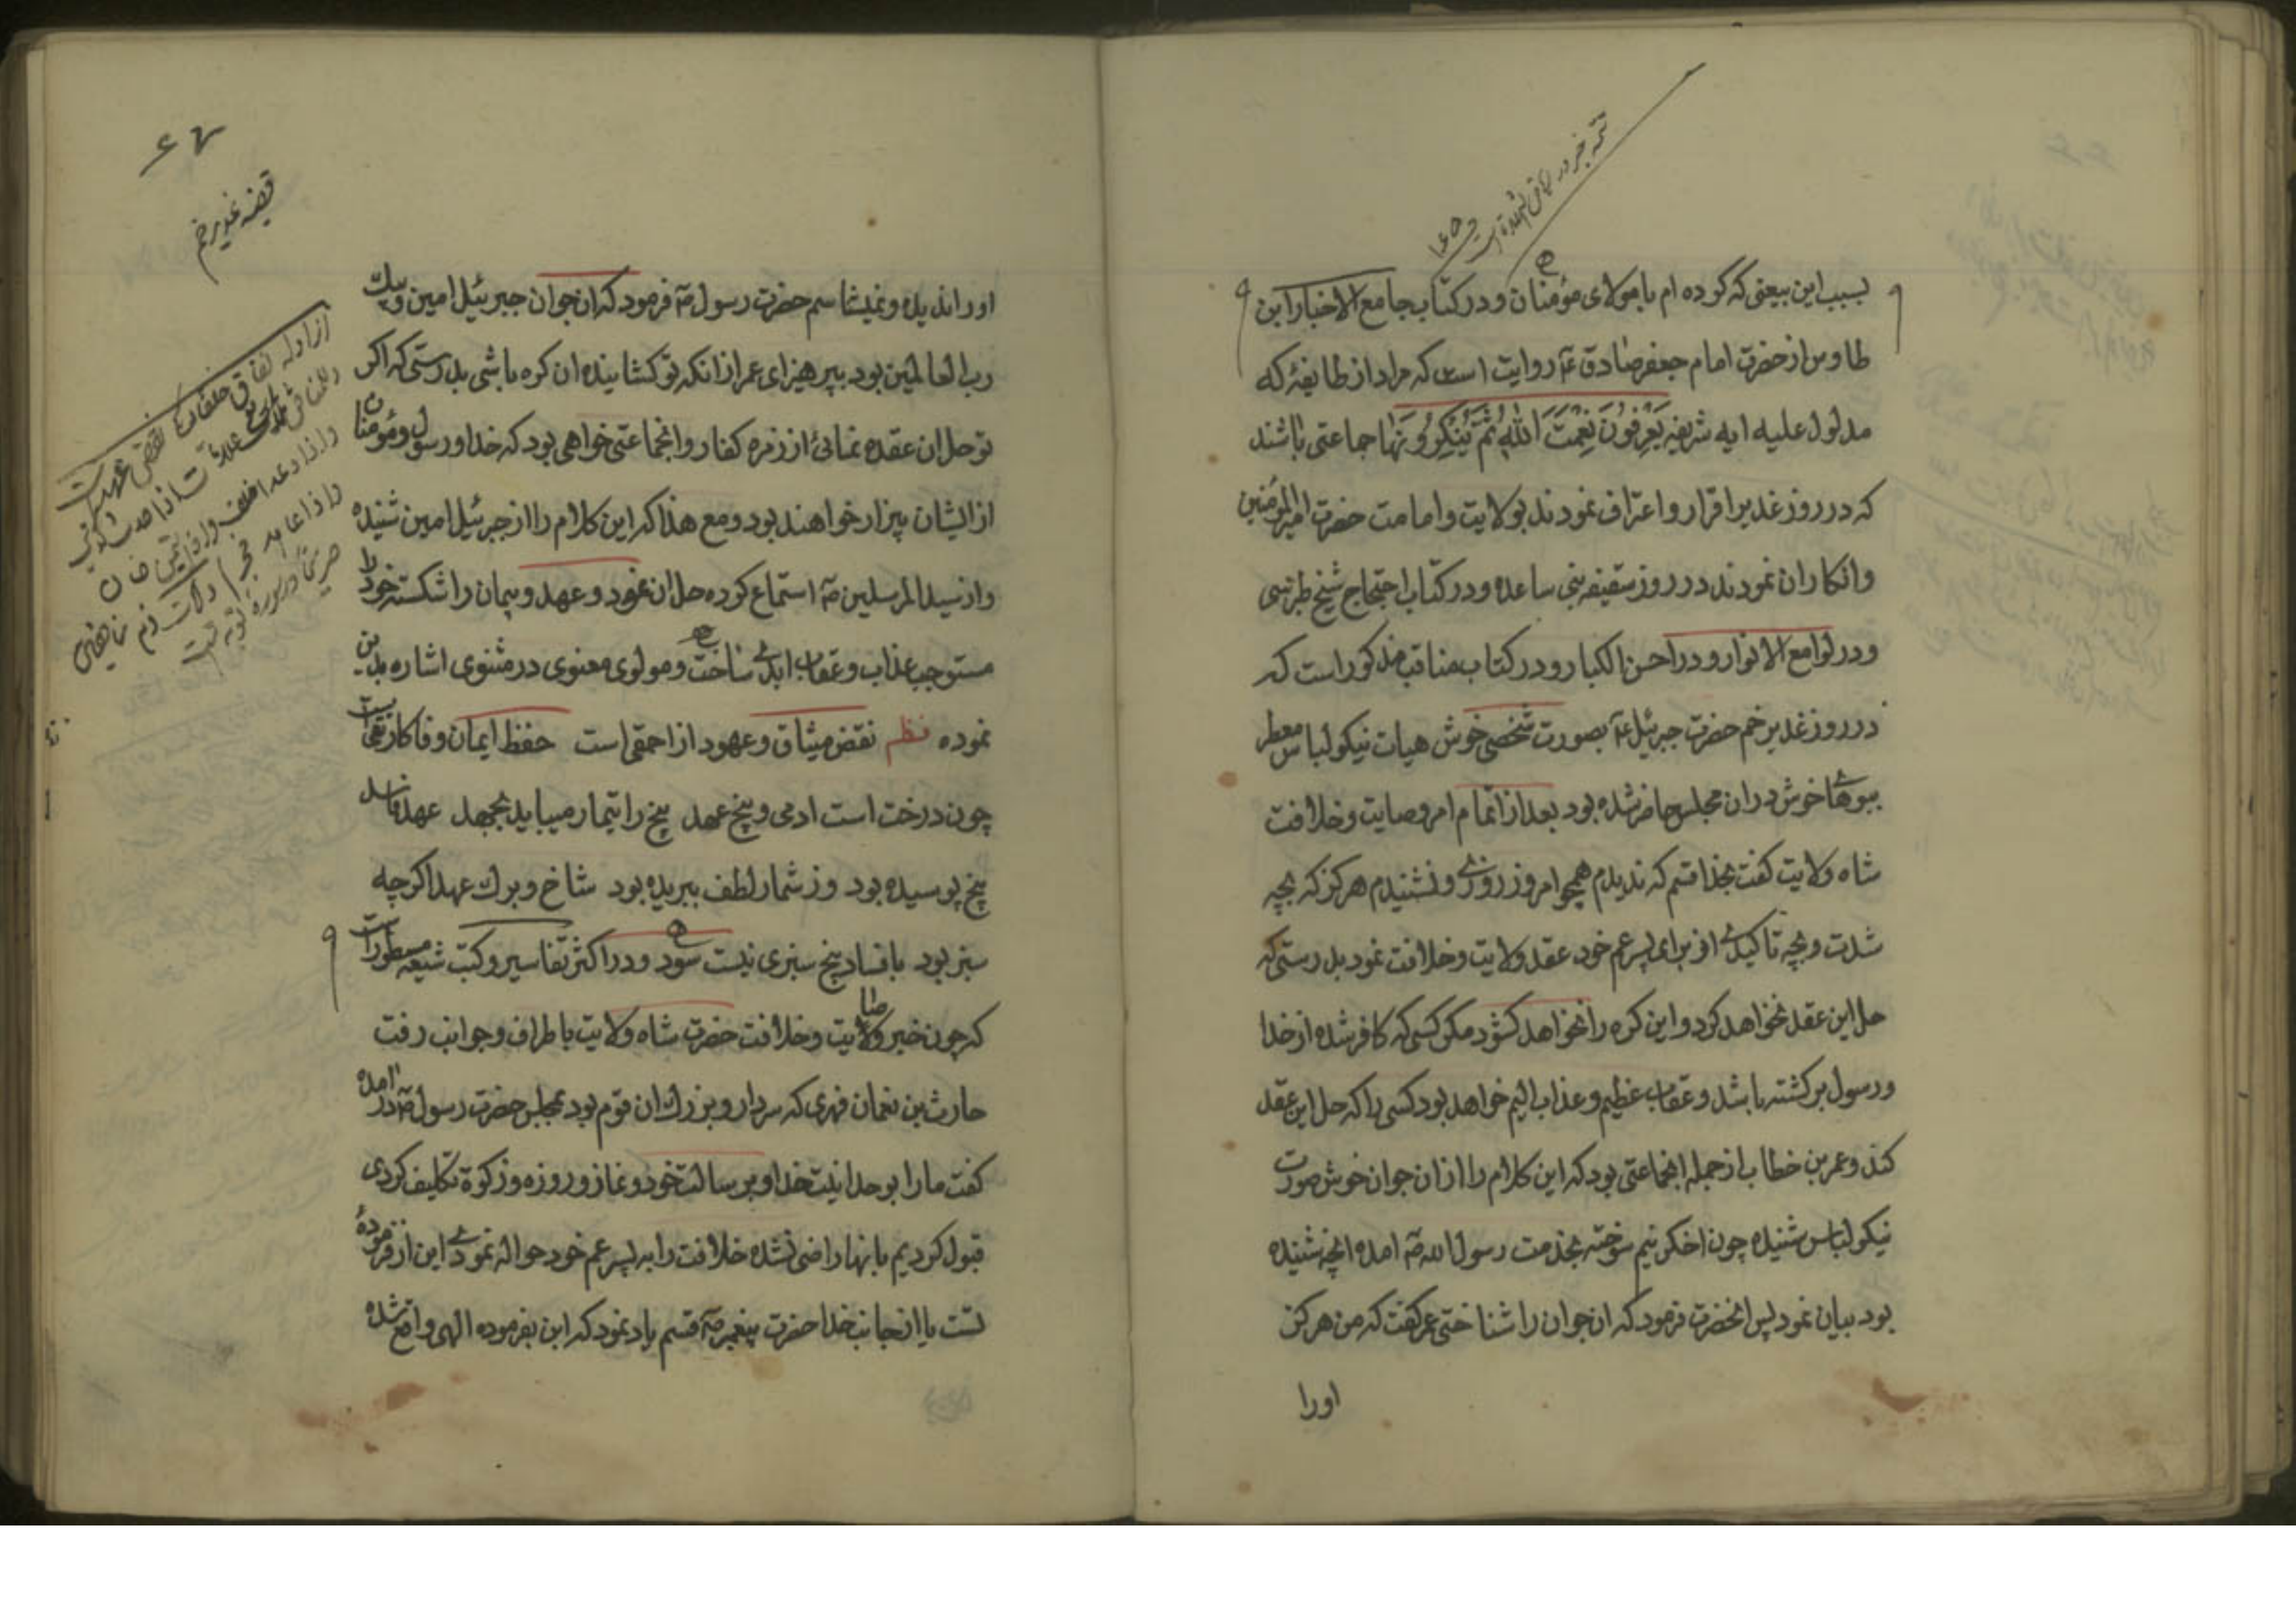 بسبب این بیعتی که کرده ام با مولای مؤمنان و در کتاب جامع الاخبار ابن
طاوس از حضرت امام جعفر صادق ع روایت است که مراد از طایفهٔ که
مدلول علیه ایه شریفه یَعْرِفُونَ نِعْمَتَ اللهِ ثُمَّ یُنْکِرُونَهَا جماعتی باشند
که در روز غدیر اقرار و اعتراف نمودند بولایت و امامت حضرت امیرالمؤمنین
و انکار ان نمودند در روز سقیفه بنی ساعده و در کتاب احتجاج شیخ طبرسی
و در لوامع الانوار و در احسن الکبار و در کتاب مناقب مذکور است که
در روز غدیر خم حضرت جبرئیل ع بصورت شخصی خوش هیات نیکو لباس معطر
ببوهای خوش در ان مجلس حاضر شده بود بعد از اتمام امر وصایت و خلافت
شاه ولایت کفت بخدا قسم که ندیدم همچو امروز روزی و نشنیدم هرکز که بچه
شدت و بچه تاکید از برای پسر عم خود عقد ولایت و خلافت نمود بدرستی که
حل این عقد نخواهد کرد و این کره را نخواهد کشود مکر کسی که کافر شده از خدا
و رسول برکشته باشد و عقاب عظیم و عذاب الیم خواهد بود کسی را که حل این عقد
کند و عمر بن خطاب از جمله انجماعتی بود که این کلام را از ان جوان خوش صورت
نیکو لباس شنیده چون اخکر نیم سوخته بخدمت رسول الله ص امده انچه شنیده
بود بیان نمود پس انحضرت فرمود که ان جوان را شناختی عمر کفت که من هرکز
اورا
۶۷
قضیه غدیر خم
او را ندیده و نمیشناسم حضرت رسول ص فرمود که ان جوان جبرئیل امین و پیک
رب العالمین بود بپرهیز ای عمر از انکه تو کشاینده ان کره باشی بدرستی که اکر
تو حل ان عقده نمائی از زمره کفار و انجماعتی خواهی بود که خدا و رسول و مؤمنان
از ایشان بیزار خواهند بود و مع هذا که این کلام را از جبرئیل امین شنیده
و از سید المرسلین ص استماع کرده حل ان نمود و عهد و پیمان را شکسته خود را
مستوجب عذاب و عقاب ابدی ساخت و مولوی معنوی در مثنوی اشاره بدین
نموده نظم نقض میثاق و عهود از احمقی است حفظ ایمان و وفا کار تقی است
چون درخت است ادمی و بیخ عهد بیخ را تیمار میباید بجهد عهد فاسد
بیخ پوسیده بود وز شمار لطف ببریده بود شاخ و برک عهد اکرچه
سبز بود با فساد بیخ سبزی نیست سود و در اکثر تفاسیر و کتب شیعه مسطور است
که چون خبر وصایت و خلافت حضرت شاه ولایت باطراف و جوانب رفت
حارث بن نعمان فهری که سردار و بزرک ان قوم بود بمجلس حضرت رسول ص در امده
کفت ما را بوحدانیت خدا و برسالت خود و نماز و روزه و زکوة تکلیف کردی
قبول کردیم باینها راضی نشده خلافت را به پسر عم خود حواله نمودی این از فرموده
تست یا از جانب خدا حضرت پیغمبر ص قسم یاد نمود که این بفرموده الهی واقع شده